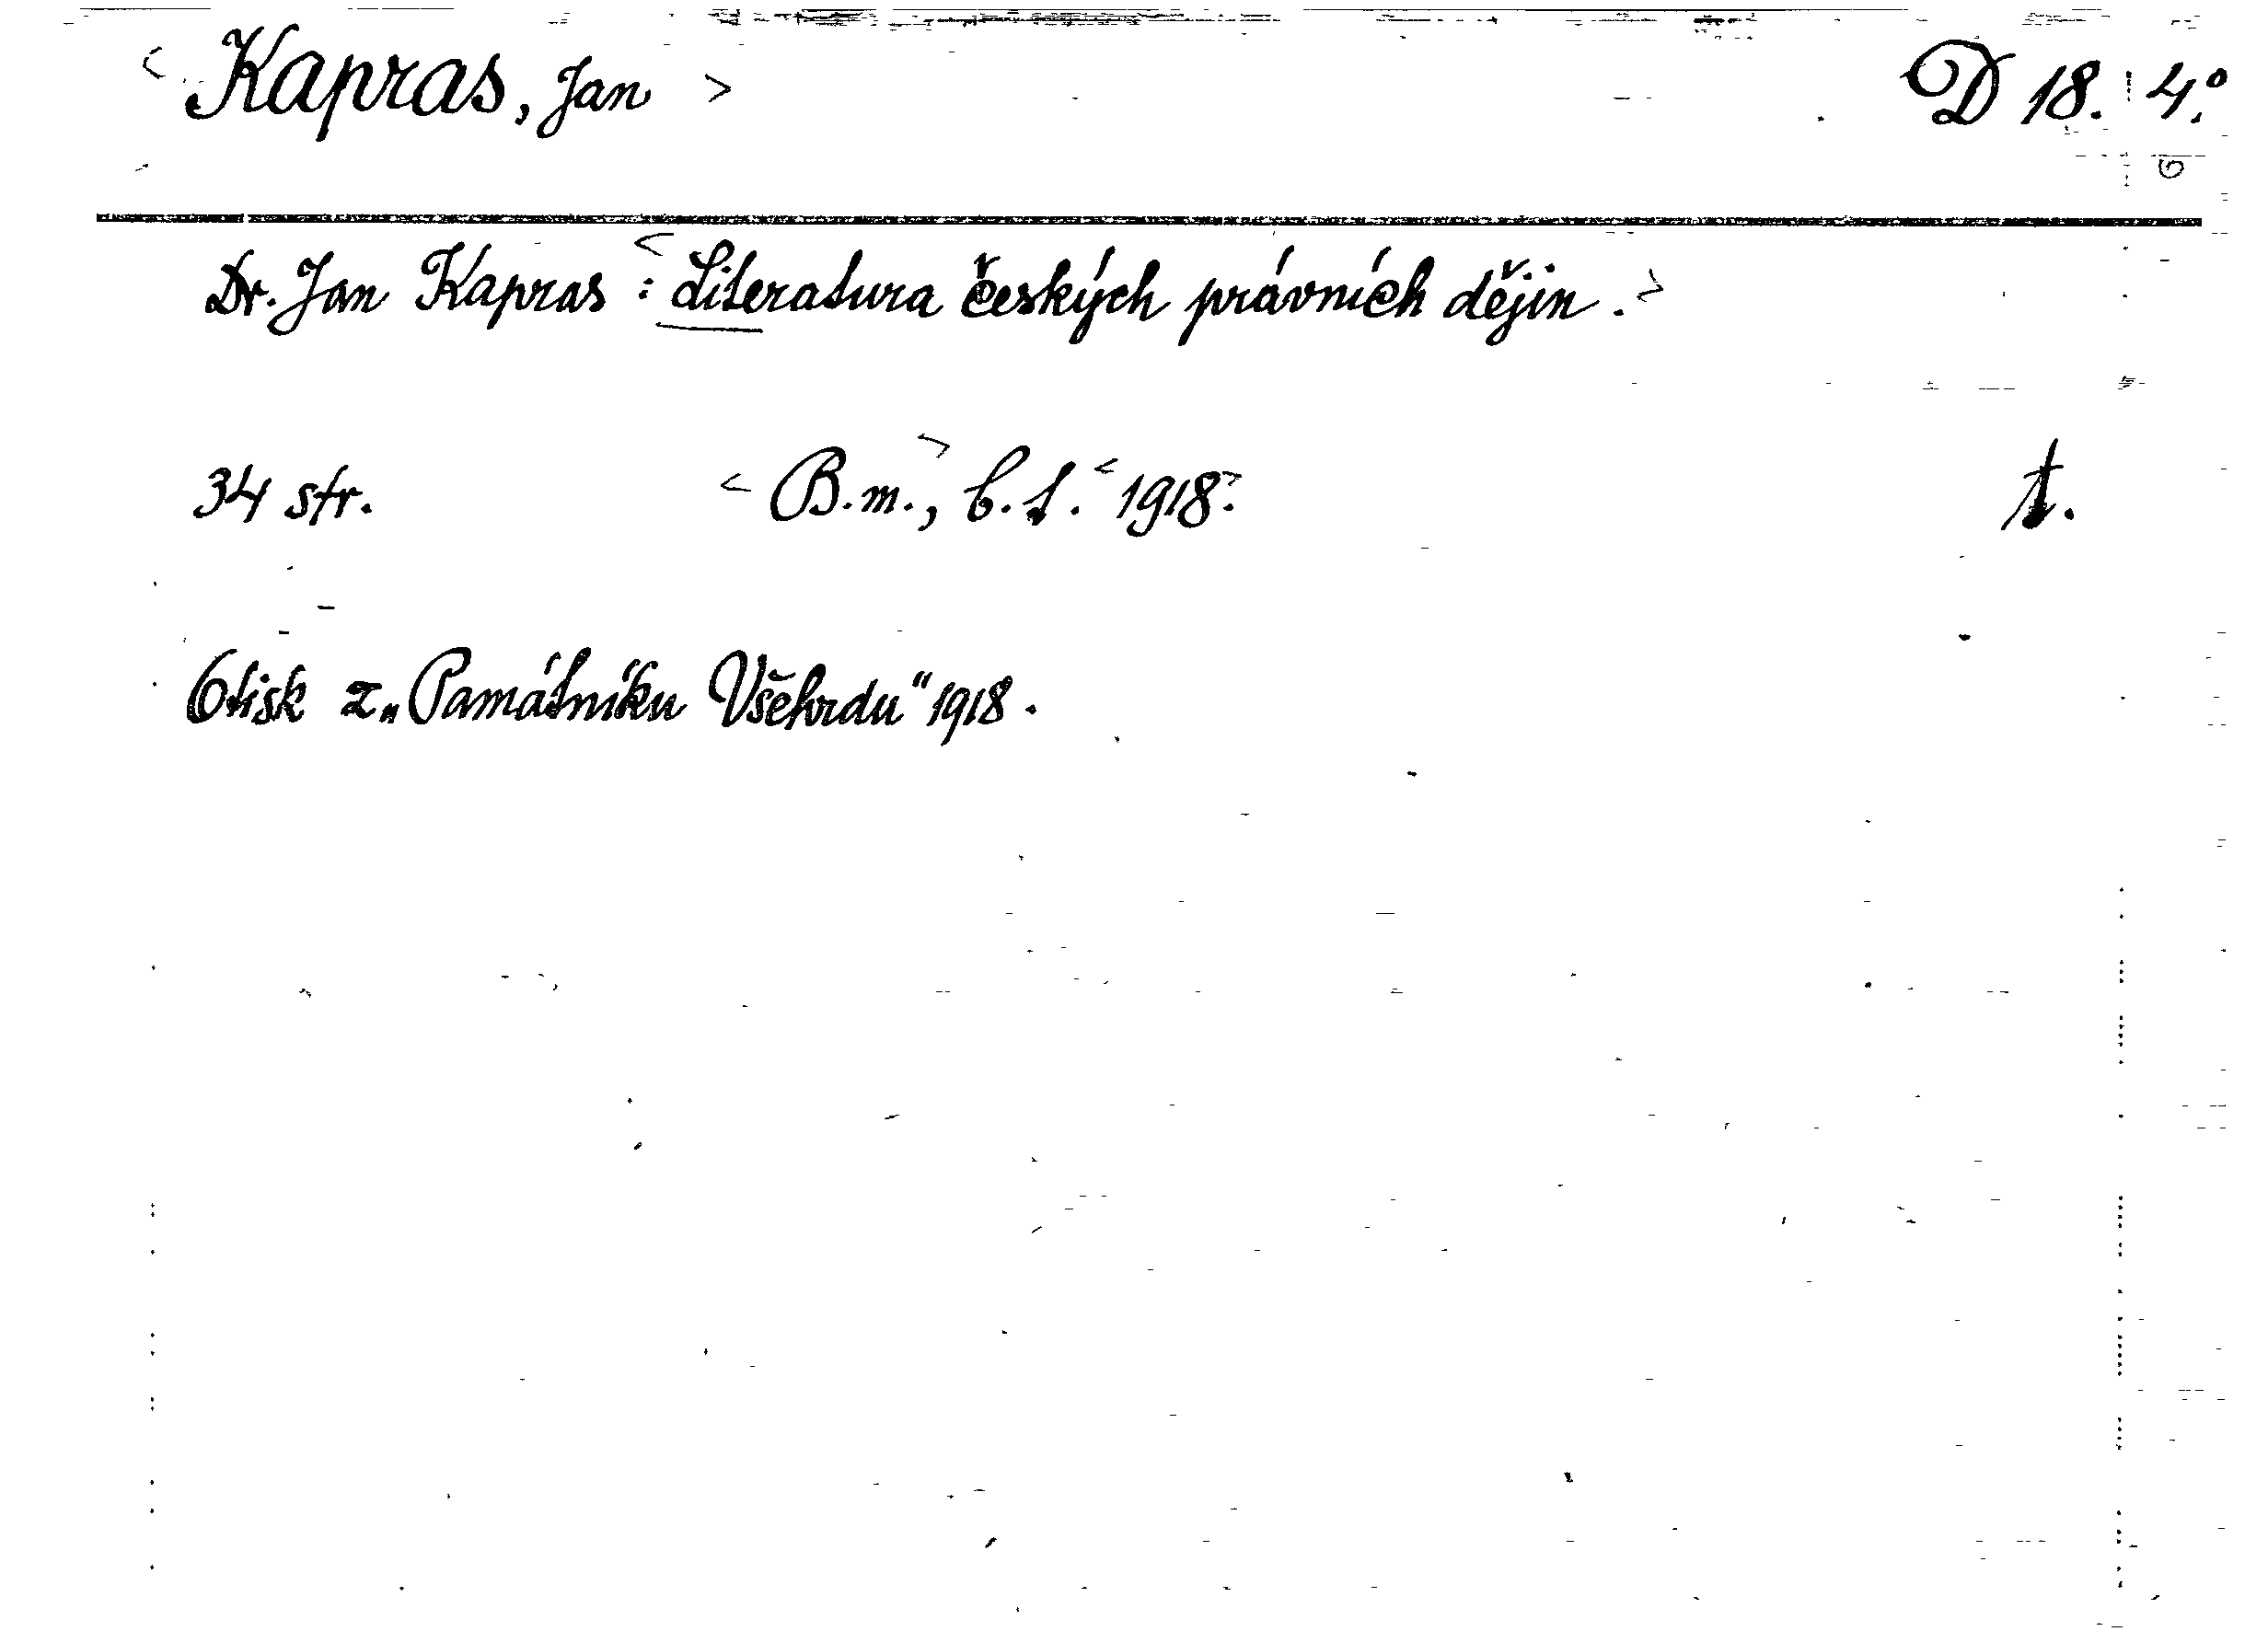 < Kapras, Jan > D 18. 4.º
Dr. Jan Kapras : < Literatura českých právních dějin . >
34 str. < B. m., > b. t. < 1918. > t.
Otisk z „Památníku Všehrdu“ 1918 .